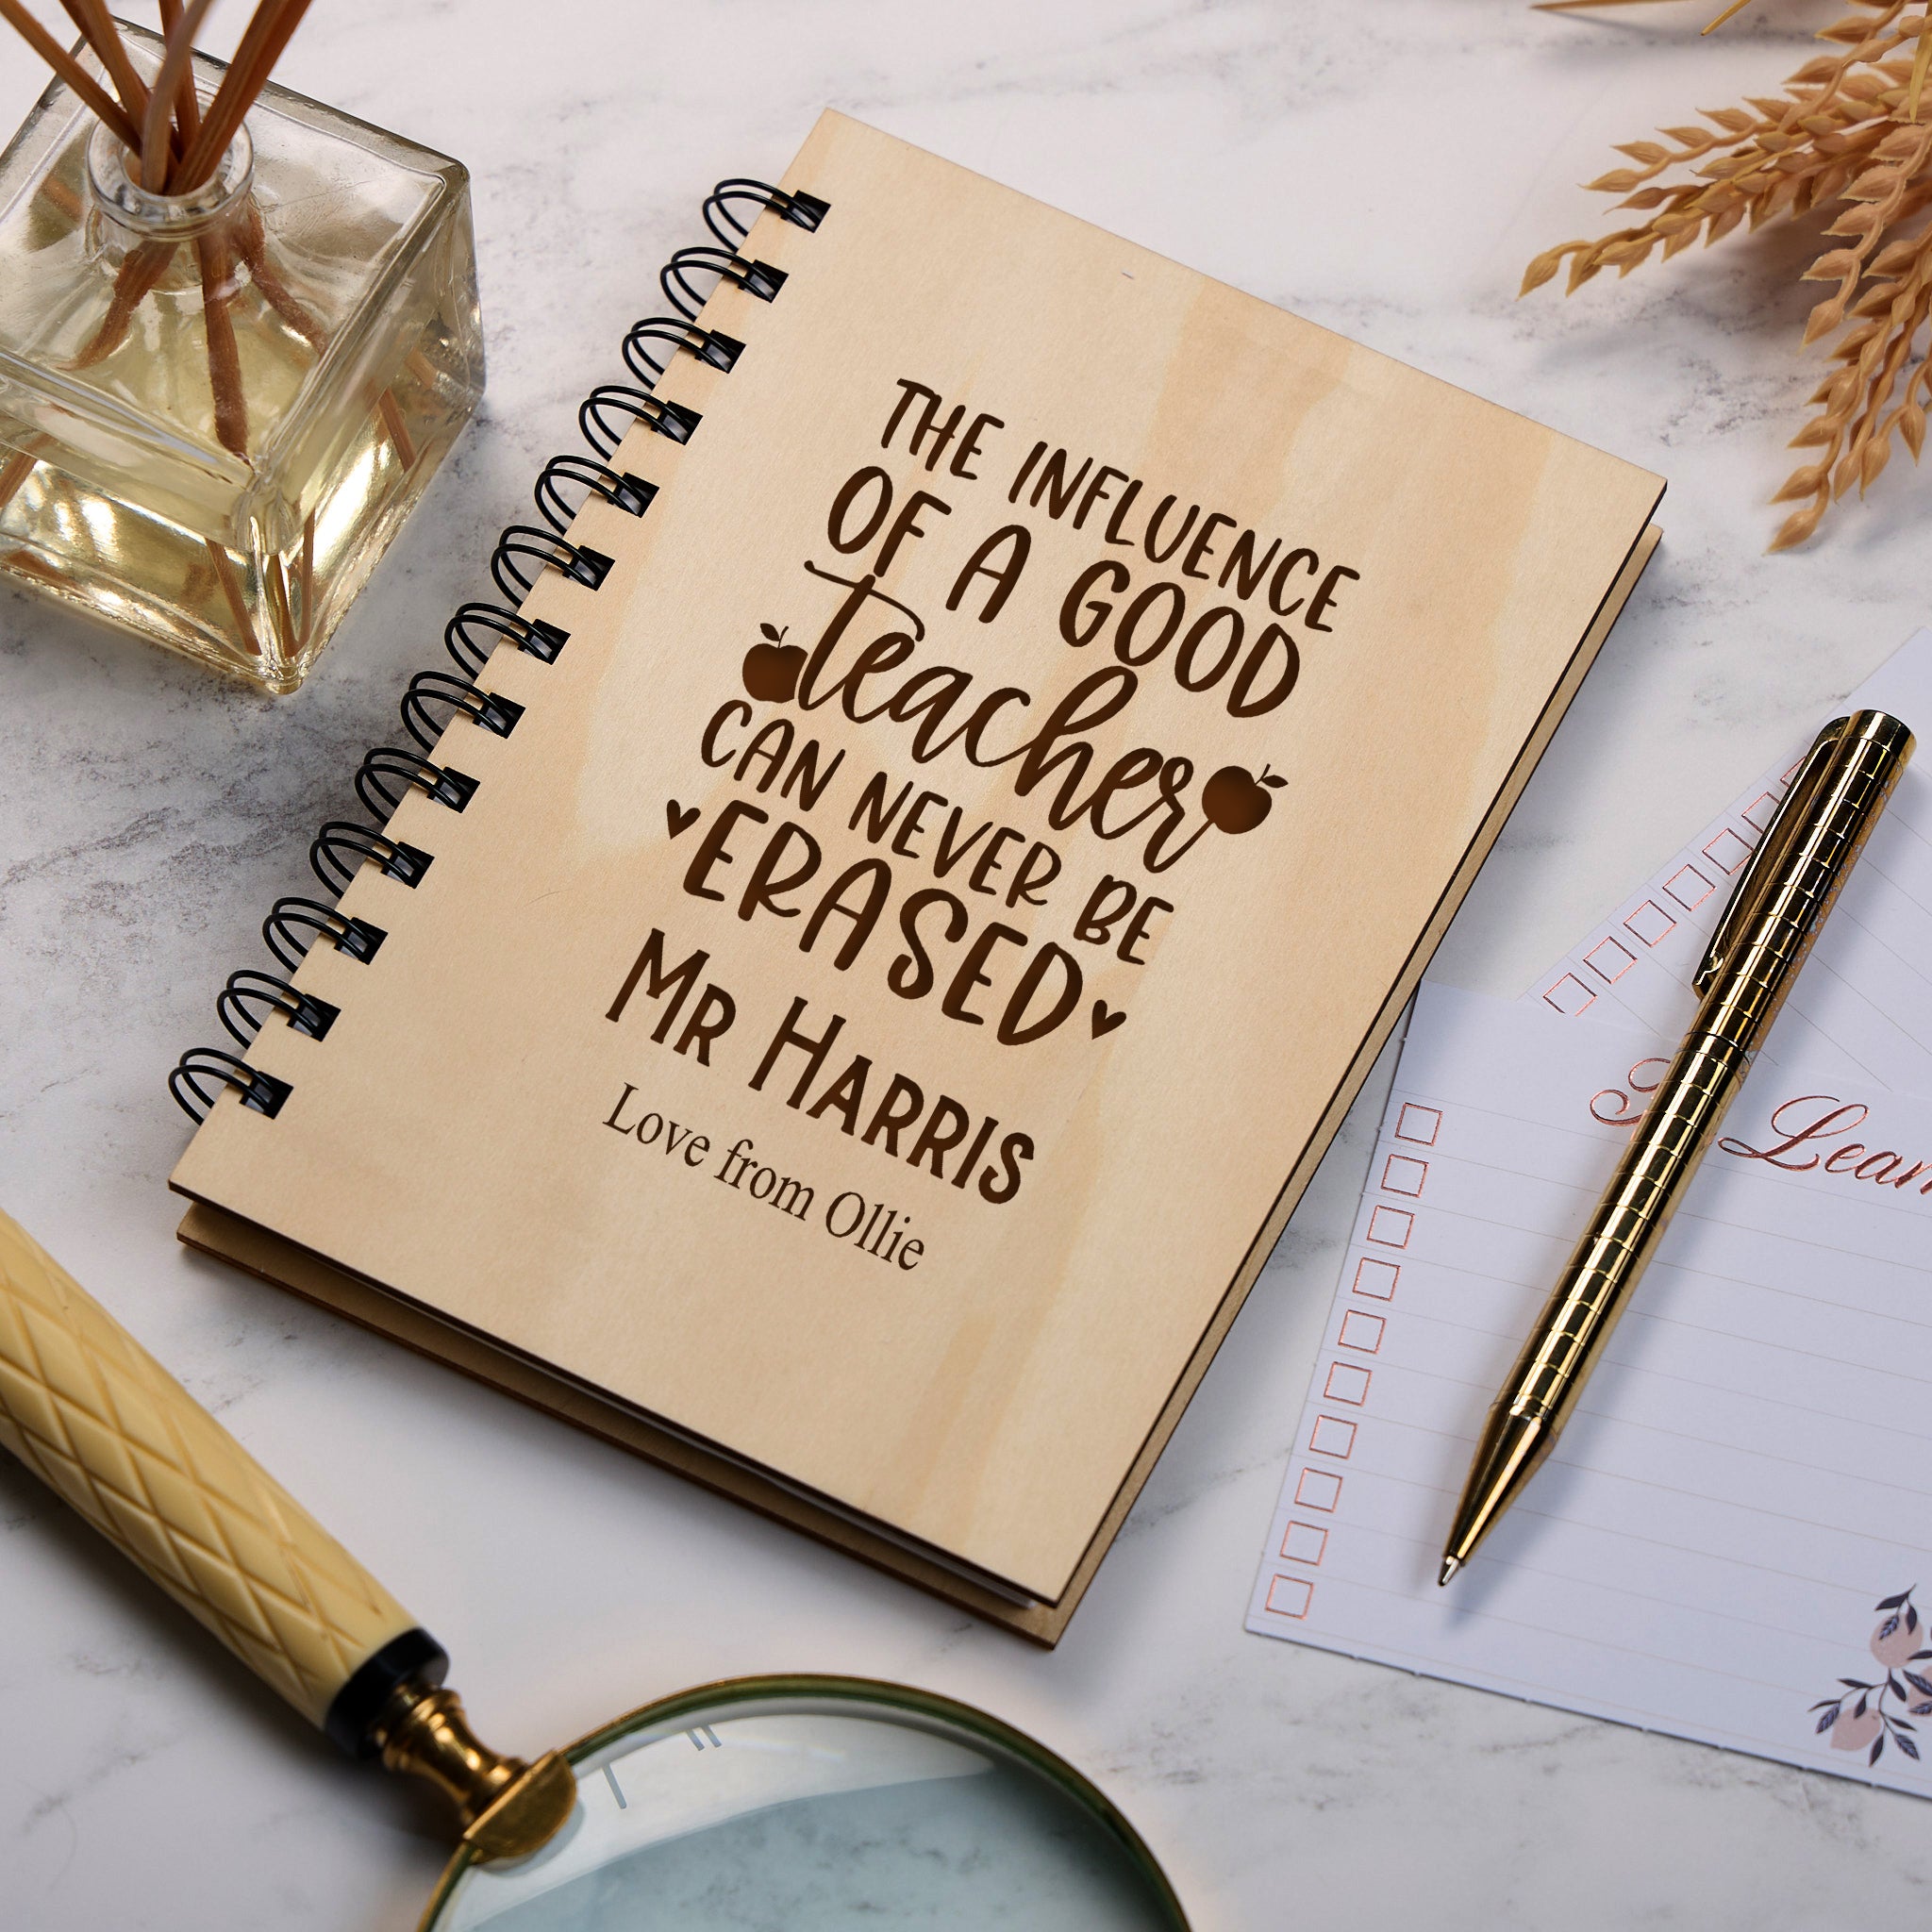 THE INFLUENCE
OF A GOOD
teacher
CAN NEVER BE
ERASED
MR HARRIS
Love from Ollie